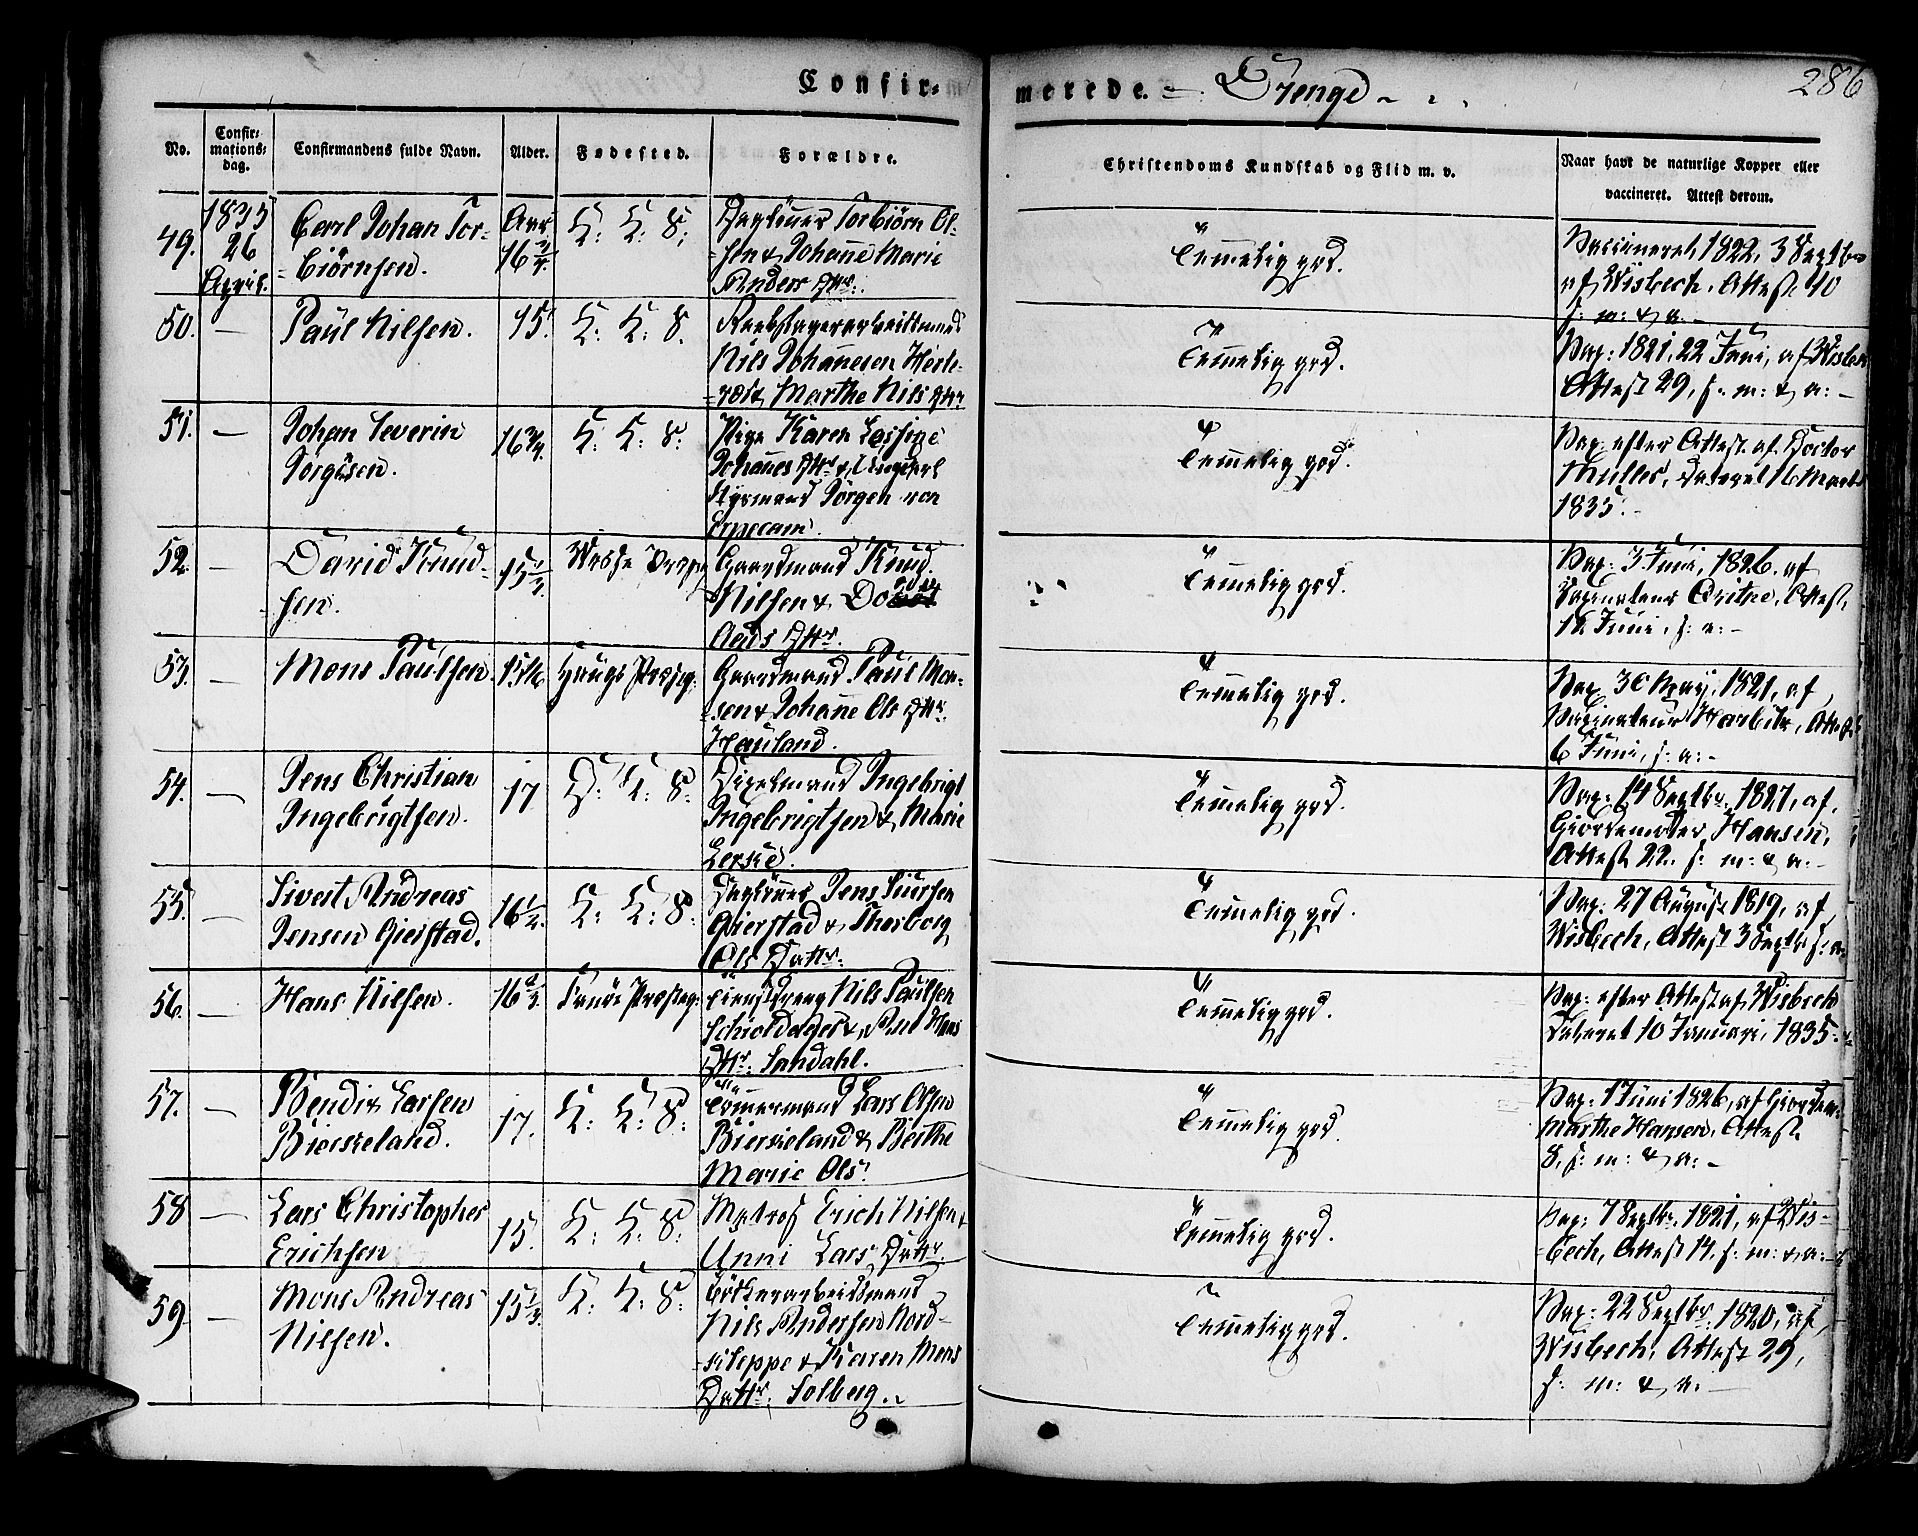 Confirmerede. Drenge
286
No.
Confirmationsdag.
Confirmandens fulde Navn.
Alder.
Fødested.
Forældre.
Christendoms Kundskab og Flid m. v.
Naar havt de naturlige Kopper eller
vaccineret. Attest derom.
49.
1835
26
April.
Carl Johan Tor-
biörnsen.
Aar
16
K: K: S:
Dagleiner Torbiörn Ol-
sen & Johanne Marie
Anders Dtr:
Temmelig god.
Vaccineret 1822, 3 Septbr
af Wisbech, Attest 10
s: m: & a:
50. —
Paul Nilsen.
15.
K: K: S.
Reebslagerarbeidsmand
Nils Johannesen
Marthe Nils Dtr
Temmelig god.
Vax: 1821, 22 Juni, af Wisbech
Attest 29, s: m: & a: -
51. —
Johan Severin
Jörgensen.
16 3/4.
K: K: S:
Pige Karen
Johannes Dtr &
Styrmand Jörgen von
Erpecam.
Temmelig god.
Vax: efter Attest af Doctor
Müller, dateret 16 Marts
1835.
52. —
David Knud-
sen.
15 1/2.
Gaardmand Knud
Nilsen &
Dtr.
Temmelig god.
Vax. 3 Juni, 1826. af
Vaxinateur Attest,
Juni, s: a: -
53. —
Mons Paulsen.
Houg Præsteg:
Gaardmand Paul Mon-
sen & Johanne Ols Dtr:
Hauland.
Temmelig god.
Vax. 30 May, 1821, af
Vaxinateur Attest
6 Juni, s: a: -
54. —
Jens Christian
Ingebrigtsen.
17
D: K: S:
Ingebrigt
Ingebrigtsen & Marie
Lexie.
Temmelig god.
Vax: 14 Septbr. 1827, af
Giordemoder Hansen,
Attest 22. s: m: & a: -
55. —
Sivert Andreas
Jensen Gierstad.
16 1/2.
K: K: S:
Dagleiner Jens Siursen
Gierstad & Thorborg
Ols Dattr.
Temmelig god.
Vax: 27 August 1819, af
Wisbech, Attest 3 Septbr s: a:
56. —
Hans Nilsen.
16 1/2.
Fanöe Præsteg:
Tienistdreng Nils Paulsen
Schioldager & Hans
Dtr: Sandahl.
Temmelig god.
Vax: efter Attest af Wisbech
dateret 10 Januari, 1835.
57. —
Bendix Larsen
Bierkeland.
17.
K: K: S:
Tömmermand Lars Olsen
Bierkeland & Berthe
Marie Ols.
Temmelig god.
Vax: 1 Juni 1826, af Giordem:
Marthe Hansen, Attest
8, s: m: & a: -
58 —
Lars Christopher
Erichsen
15.
K: K: S:
Matros Erich Nilsen &
Unni Lars Dattr.
Temmelig god.
Vax: 7 Septbr. 1821, af Wis-
bech, Attest 14. s: m: & a: -
59 —
Mons Andreas
Nilsen.
15 1/2
K: K: S:
Bödkerarbeidsmand
Nils Andersen Nord-
kleppe & Karen Mons
Dattr: Solberg.
Temmelig god.
Vax: 22 Septbr. 1820, af
Wisbech, Attest 29,
s: m: & a: —